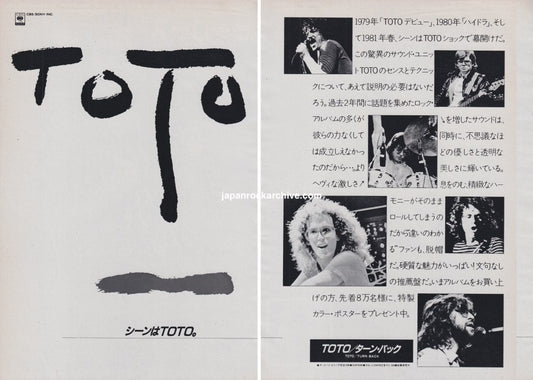 CBS/SONY INC.
TOTO
シーンはTOTO。
japanrockarchive.com
1979年「TOTOデビュー」、1980年「ハイドラ」、そし
て1981年春、シーンはTOTOショックで幕開けだ。
この驚異のサウンド・ユニッ
トTOTOのセンスとテクニッ
クについて、あえて説明の必要はないだ
ろう。過去2年間に話題を集めたロック・
アルバムの多くが
彼らの力なくして
は成立しえなかっ
たのだから…。より
ヘヴィな激しさ
を増したサウンドは、
同時に、不思議なほ
どの優しさと透明な
美しさに輝いている。
息をのむ、精緻なハー
モニーがそのまま
ロールしてしまうの
だから"違いのわか
る"ファンも、脱帽
だ。硬質な魅力がいっぱい!文句なし
の推薦盤だ。いまアルバムをお買い上
げの方、先着8万名様に、特製
カラー・ポスターをプレゼント中。
TOTO/ターン・バック
TOTO/TURN BACK